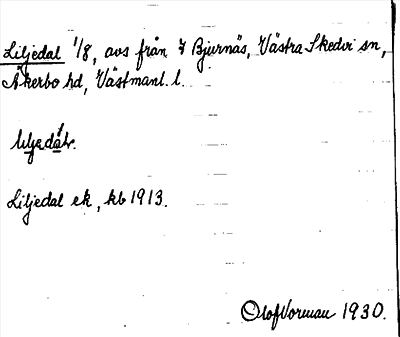 Liljedal 1/8, avs från 7 Bjurnäs, Västra Skedvi sn,
Åkerbo hd, Västmanl. l.
Liljedal ek, kb 1913.
Olof Vorman 1930.